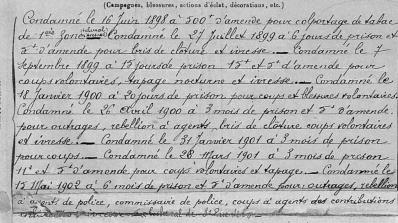 (Campagnes, blessures, actions d'éclat, décorations, etc.)
Condamné le 16 juin 1898 à 500f d'amende pour colportage de tabac
de 1ère zone Condamné le 27 juillet 1899 à 6 jours de prison et
5f d'amende pour bris de clôture et ivresse. — Condamné le 7
septembre 1899 à 15 jours de prison 15f et 5f d'amende pour
coups volontaires, tapage nocturne et ivresse. — Condamné le
18 janvier 1900 à 20 jours de prison pour coups et blessures volontaires.
Condamné le 26 avril 1900 à 3 mois de prison et 5f d'amende
pour outrages, rebellion à agents, bris de clôture coups volontaires
et ivresse. — Condamné le 31 janvier 1901 à 3 mois de prison
pour coups. — Condamné le 28 mars 1901 à 3 mois de prison
11f et 5f d'amende pour coups volontaires et tapage. — Condamné le
15 Mai 1902 à 6 mois de prison et 5f d'amende pour outrages, rebellion
à agents de police, commissaire de police, coups at agents des contributions